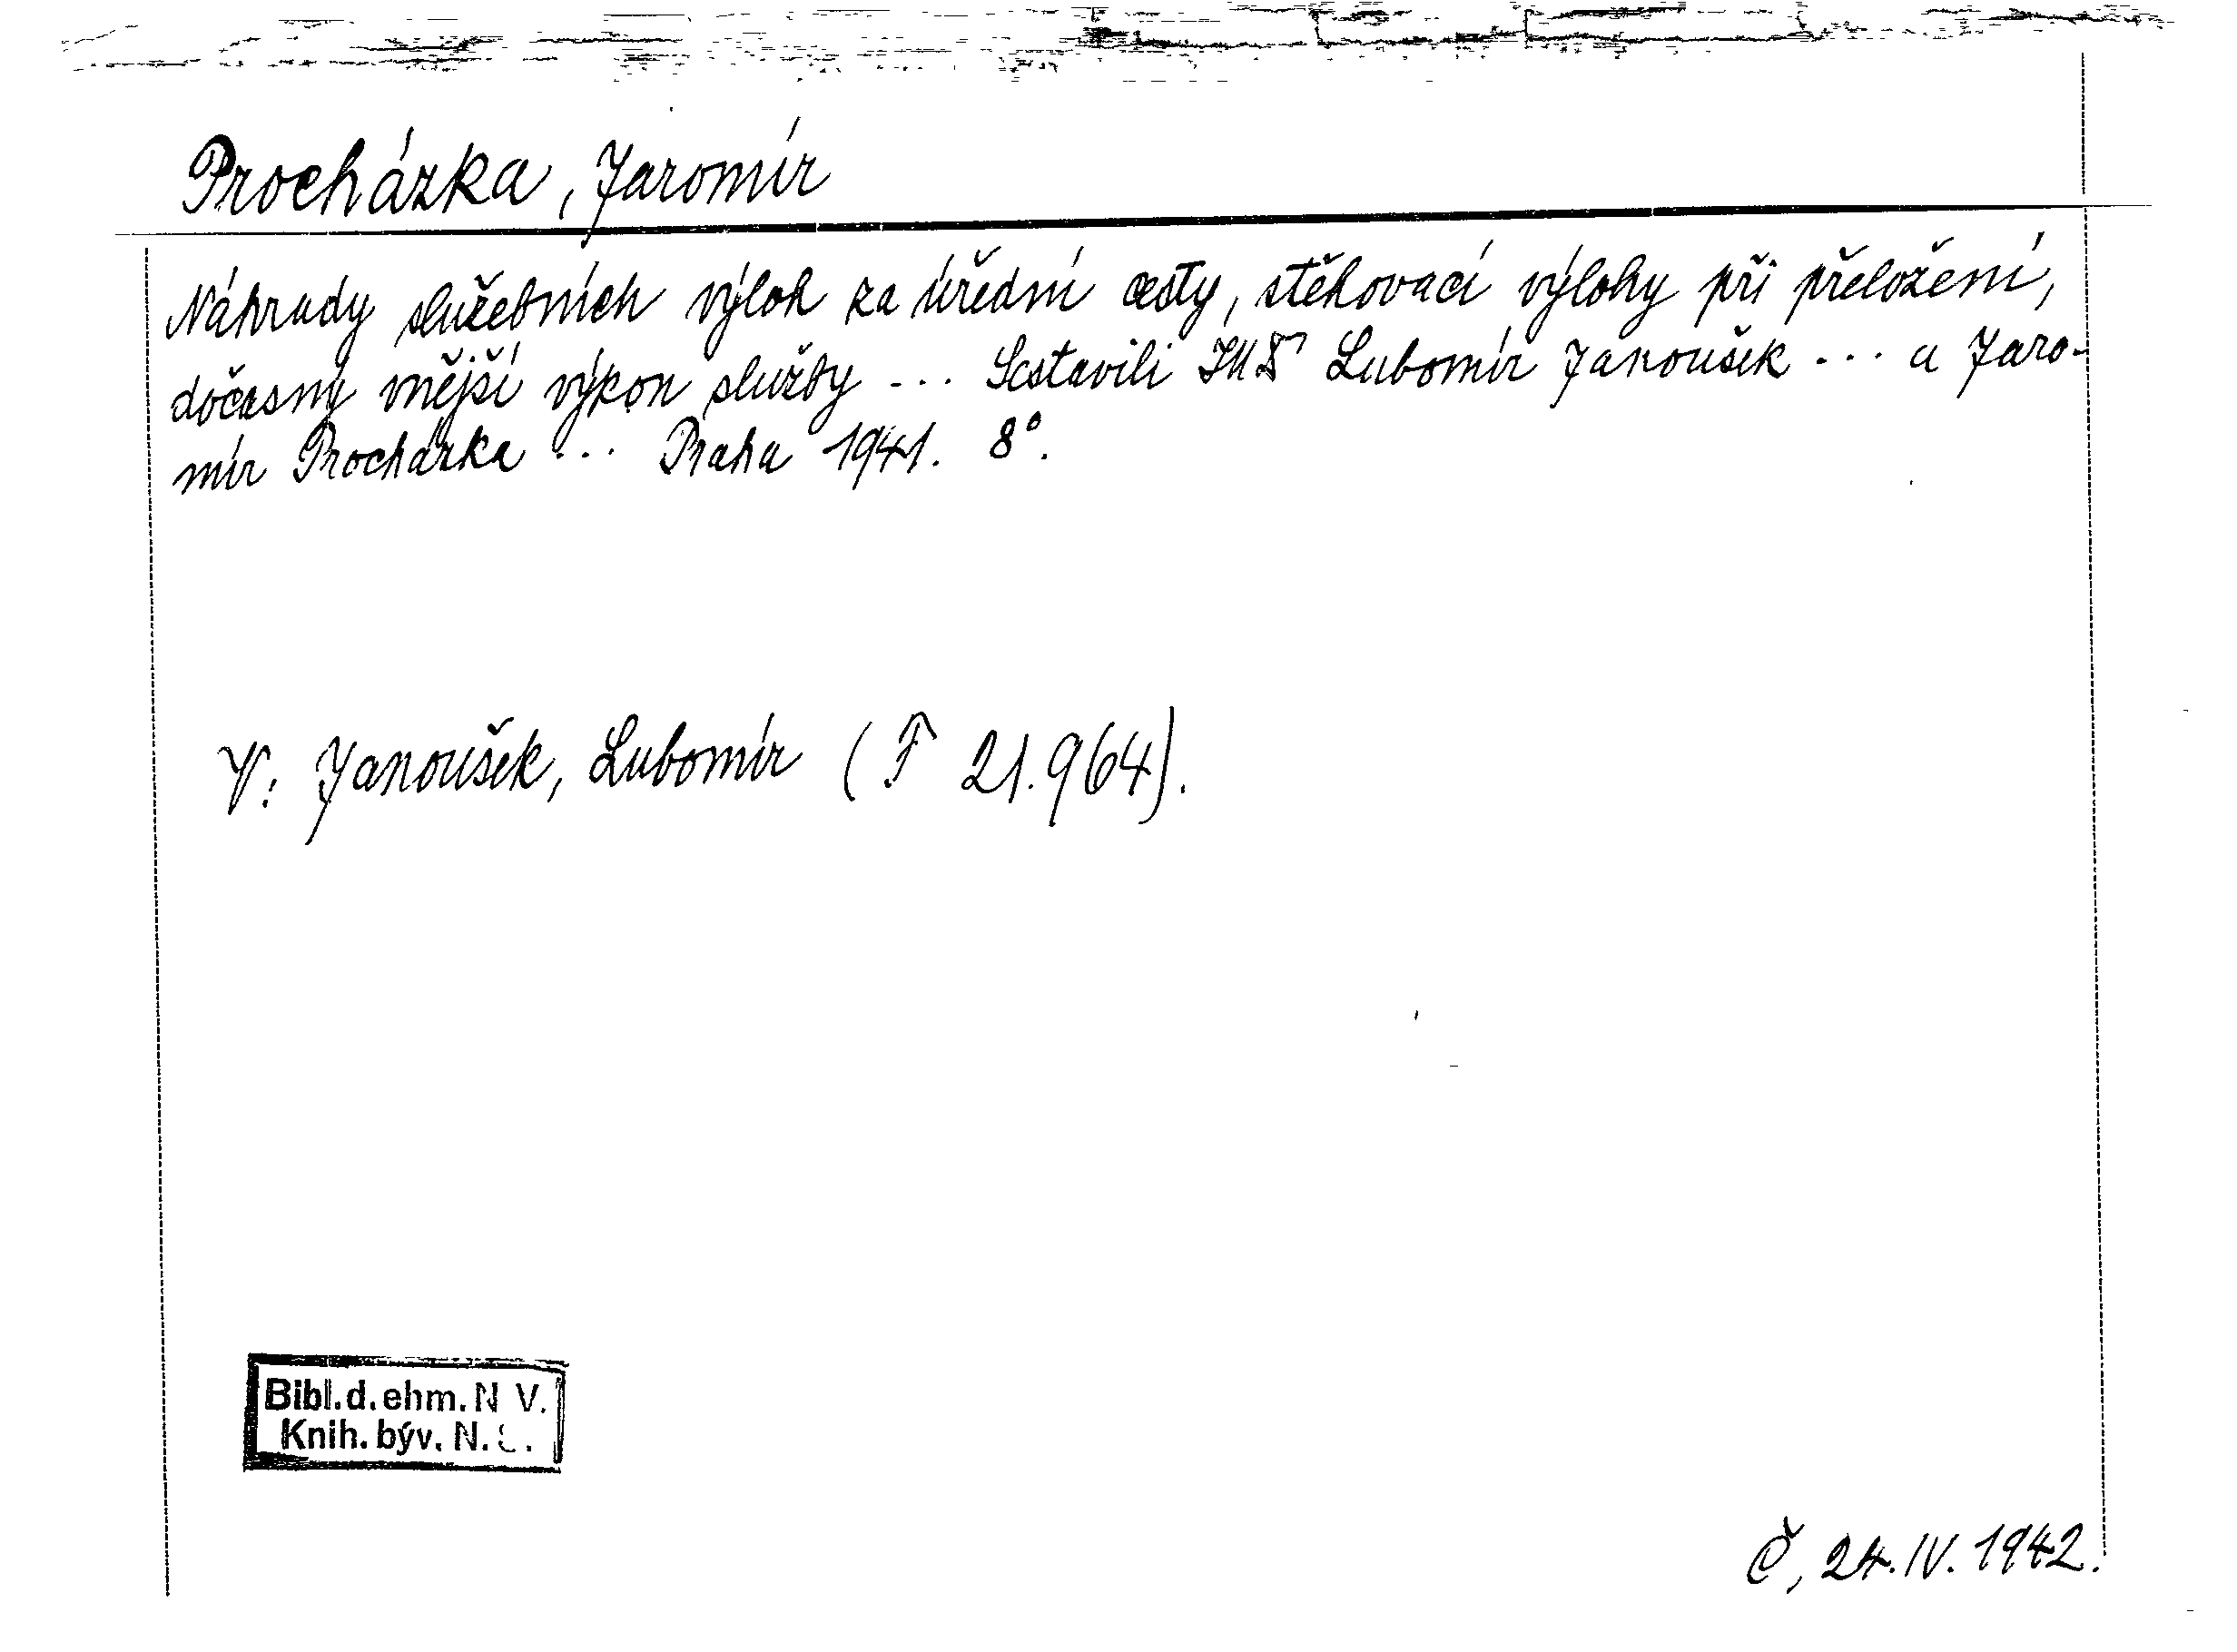 Procházka, Jaromír
Náhrady služebních výloh za úřední cesty, stěhovací výlohy při přeložení,
dočasný vnější výkon služby ... Sestavili JUDr Lubomír Janoušek ... a Jaro-
mír Procházka ... Praha 1941. 8°.
V: Janoušek, Lubomír (F 21.964).
Bibl.d.ehm.N V.
Knih.býv.N.S.
Č, 24.IV.1942.